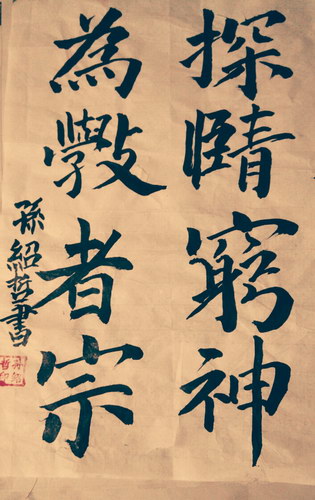 探賾窮神
為斆者宗
孫紹哲書